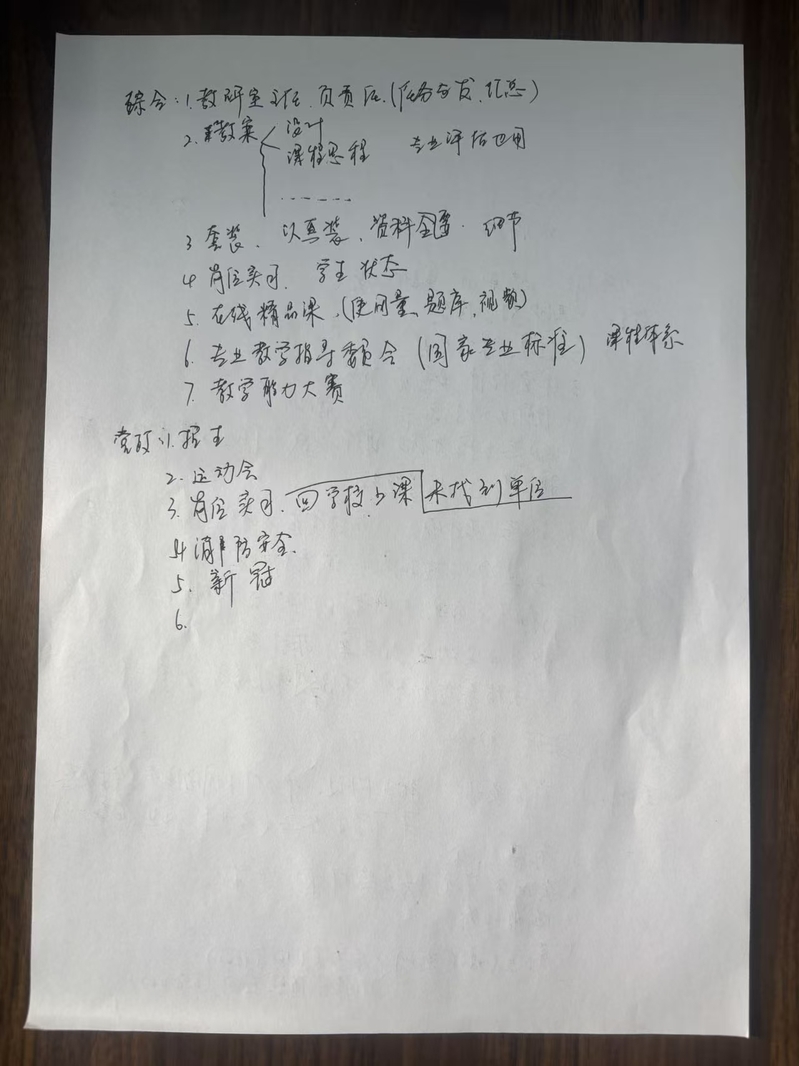 综合：1. 教研室主任、负责任、(任务分发、汇总)
2. 教案 设计
课程思程 专业评估也用
......
3 套装、以真装、资料全 . 细节
4 岗位实习、学生状态
5. 在线精品课、(使用量、题库、视频)
6. 专业教学指导委员会 (国家专业标准) 课程体系
7. 教学能力大赛
党政：1. 招生
2. 运动会
3. 岗位实习、回学校上课 未找到单位
4 消防安全.
5. 新冠
6.